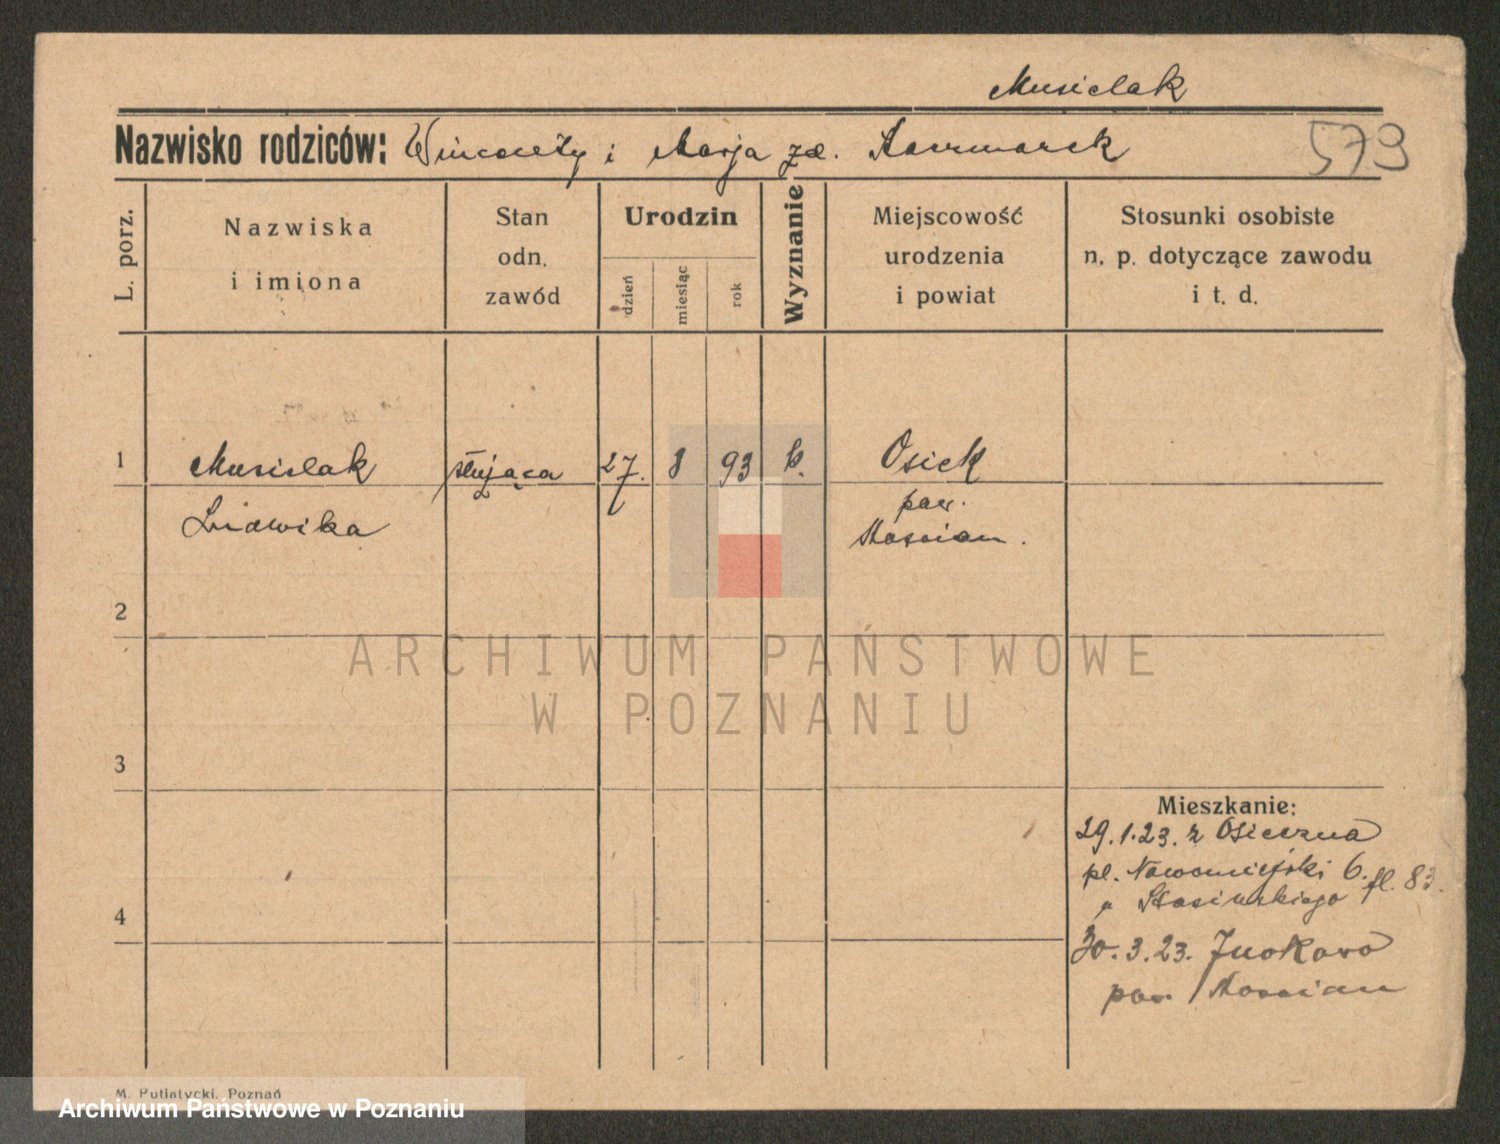 Musielak
Nazwisko rodziców: Wincenty i Marja zd. Kaczmarek
579
L. porz.
Nazwiska
i imiona
Stan
odn.
zawód
Urodzin
dzień
miesiąc
rok
Wyznanie
Miejscowość
urodzenia
i powiat
Stosunki osobiste
n. p. dotyczące zawodu
i t. d.
1 Musielak służąca 27. 8 93 k. Osiek
Ludwika pow.
Kościan.
2
3
4
ARCHIWUM PAŃSTWOWE
W POZNANIU
Mieszkanie:
29.1.23. z Osieczna
pl. Nowomiejski 6. fl. 83.
u Stasińskiego
30.3.23.
pow. Kościan
M. Putiatycki, Poznań
Archiwum Państwowe w Poznaniu